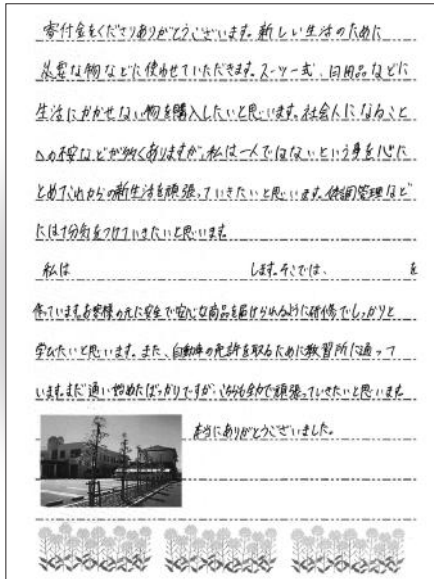 寄付金をくださりありがとうございます。新しい生活のために
必要な物などに使わせていただきます。スーツ一式、日用品などに
生活にかかせない物を購入したいと思います。社会人になること
への不安などが多くありますが、私は一人ではないという事を心に
とめてこれからの新生活を頑張っていきたいと思います。体調管理など
には十分気をつけていきたいと思います
私は します。そこでは、 を
作っています。お客様の元に安全で安心な商品を届けられるように研修でしっかりと
学びたいと思います。また、自動車の免許を取るために教習所に通って
います。まだ通い始めたばっかりですが、こちらも全力で頑張っていきたいと思います
本当にありがとうございました。